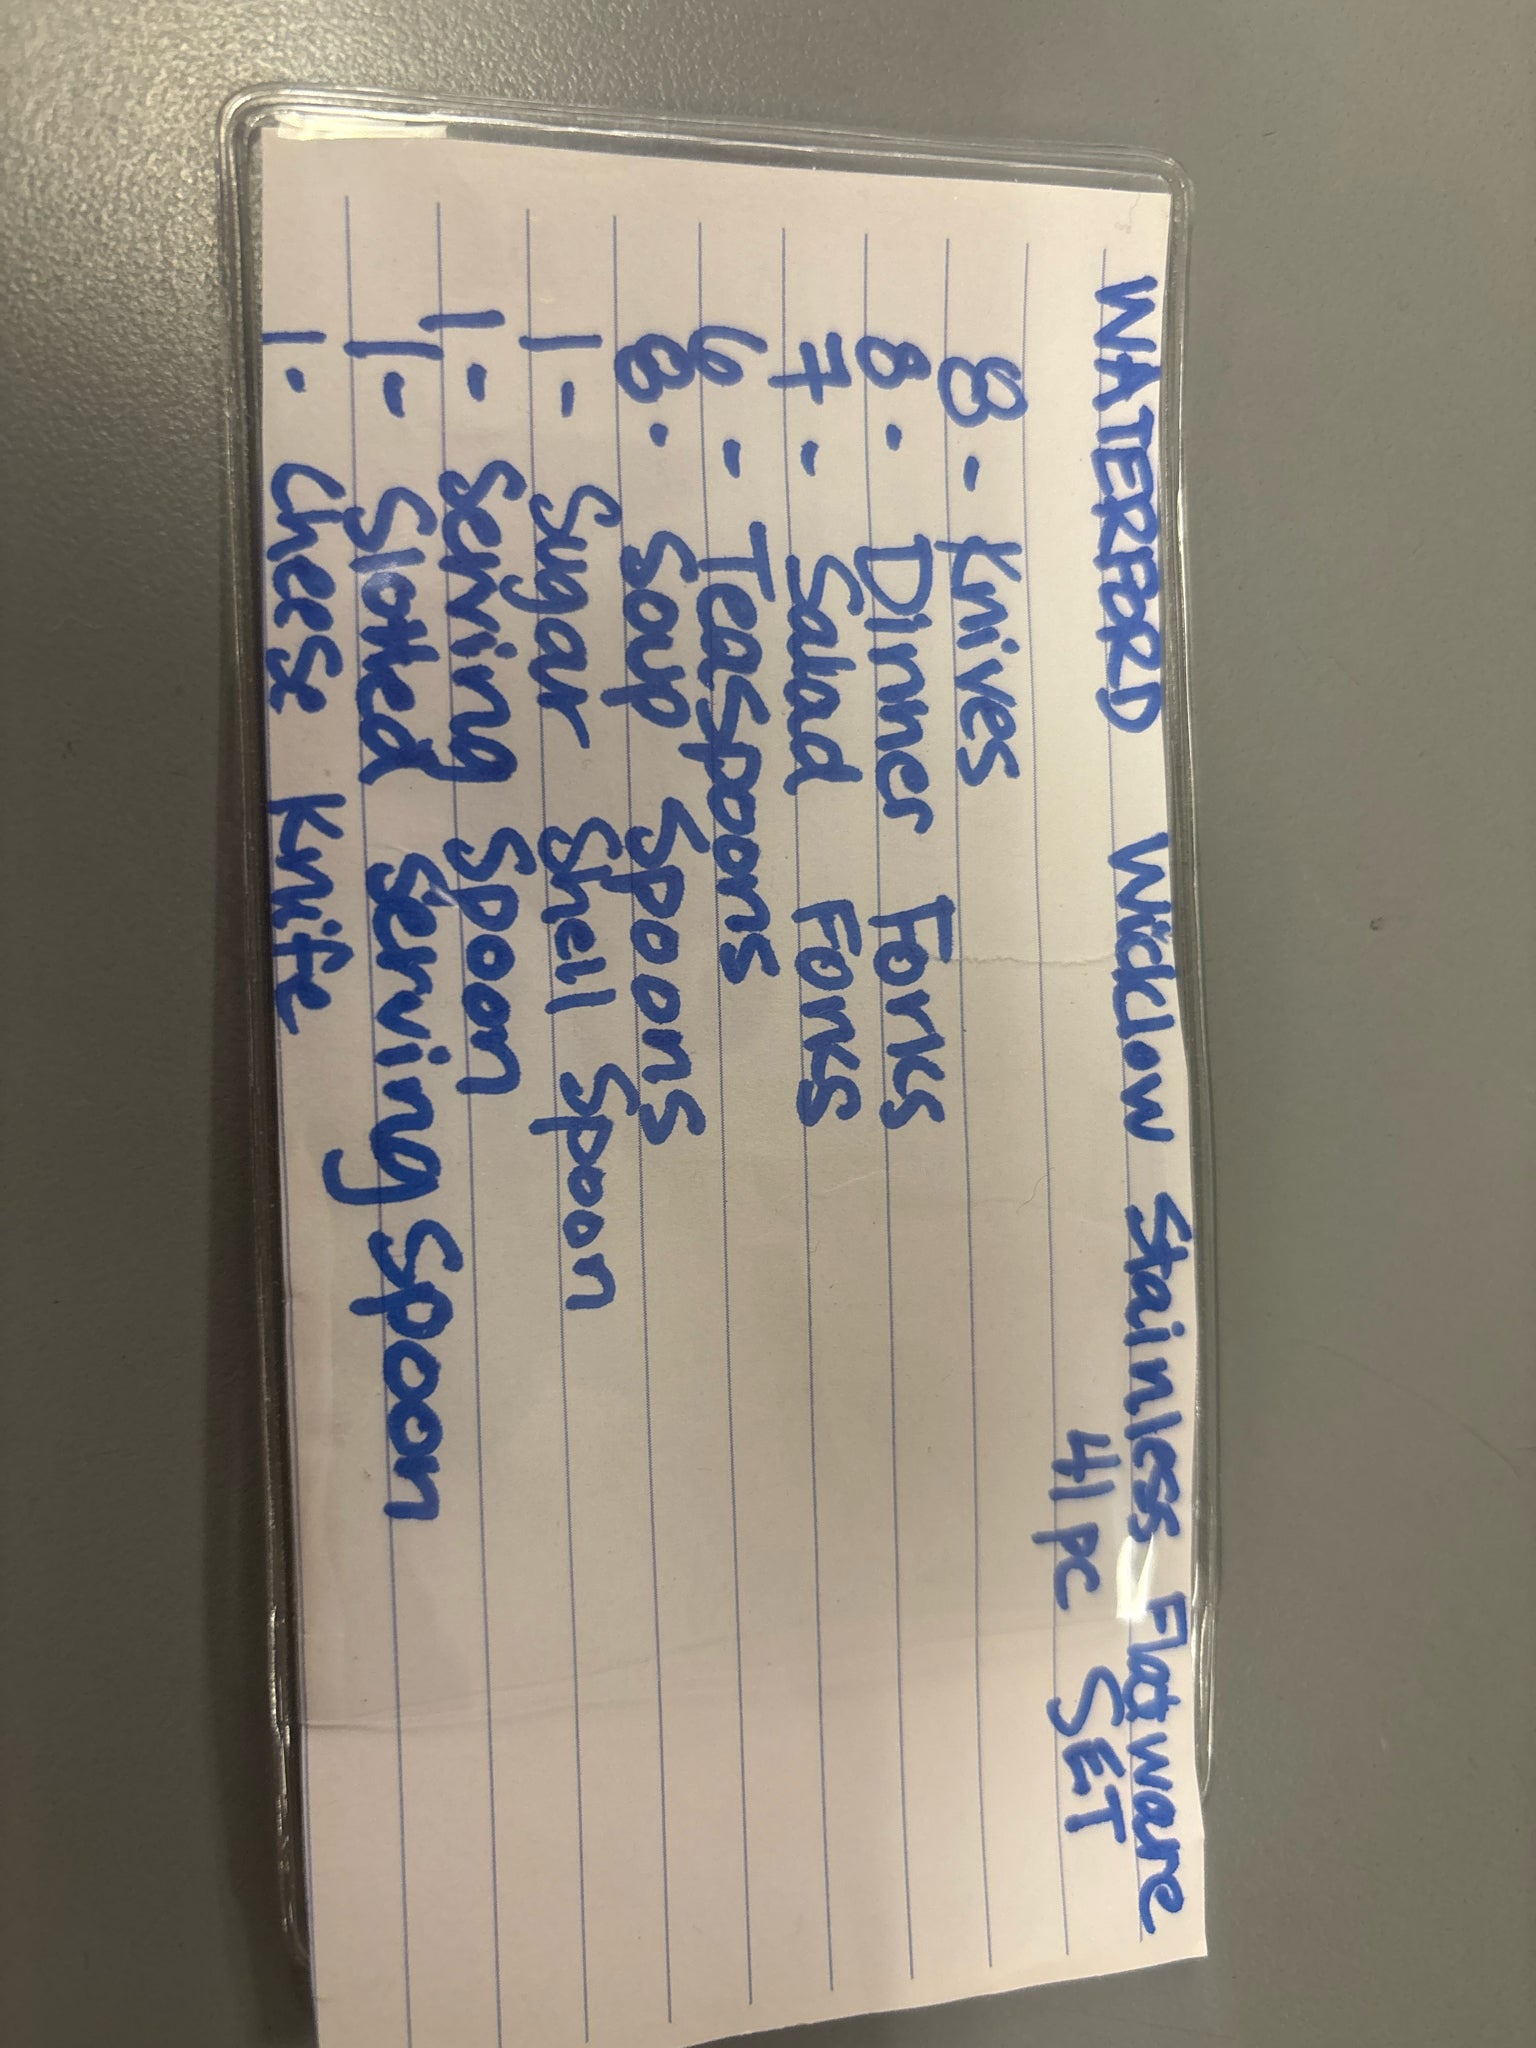 WATERFORD Wicklow Stainless Flatware
41 pc SET
8 - Knives
8 - Dinner Forks
7 - Salad Forks
6 - Teaspoons
8 - Soup Spoons
1 - Sugar Shell Spoon
1 - Serving Spoon
1 - Slotted Serving Spoon
1 - Cheese Knife